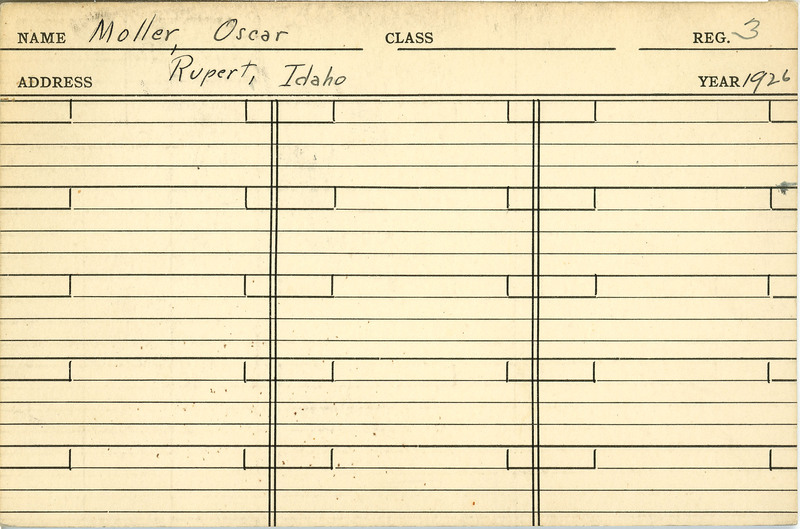 NAME Moller, Oscar CLASS REG. 3
ADDRESS Rupert, Idaho YEAR 1926